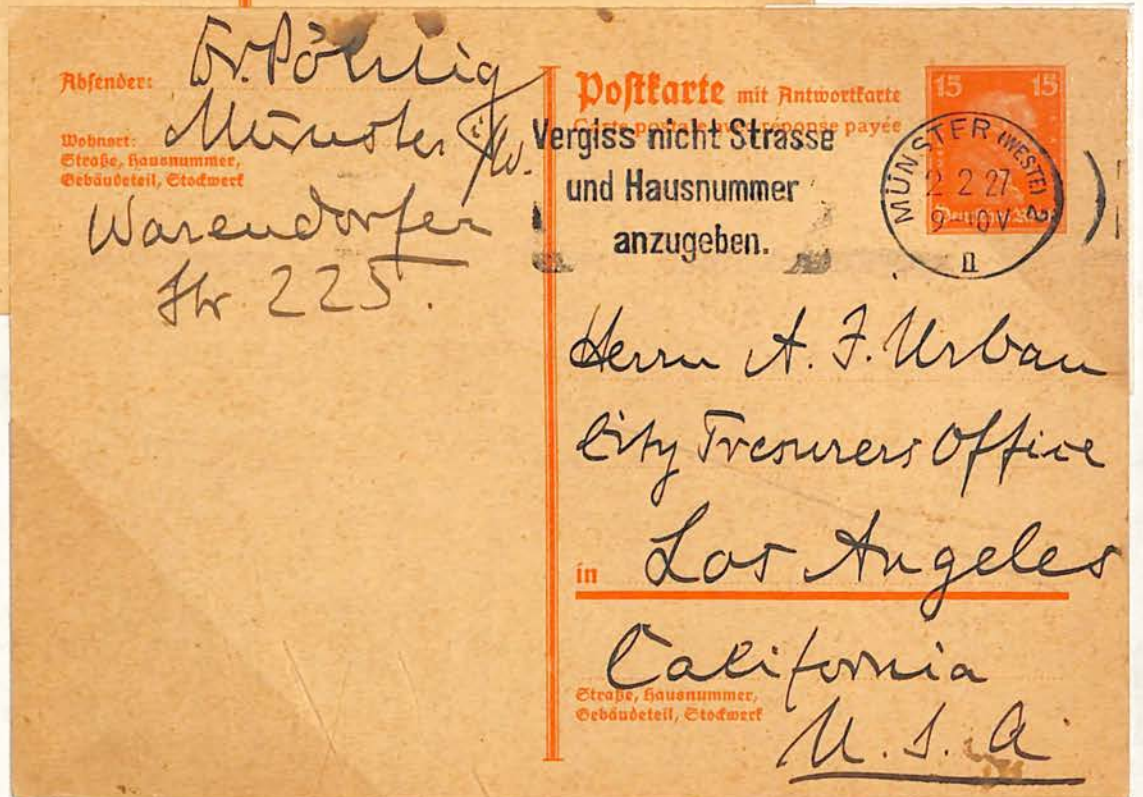 Absender: Dr. Pöhlig
Wohnort: Münster i/W.
Straße, Hausnummer,
Gebäudeteil, Stockwerk
Warendorfer
Str 225.
Postkarte mit Antwortkarte
Carte postale avec réponse payée
15 15
Vergiss nicht Strasse
und Hausnummer
anzugeben.
MÜNSTER (WESTF) 2
2 2 27
9-10V
n
Herrn A. F. Urban
City Tresurers Office
in Los Angeles
California
Straße, Hausnummer,
Gebäudeteil, Stockwerk
U. S. A